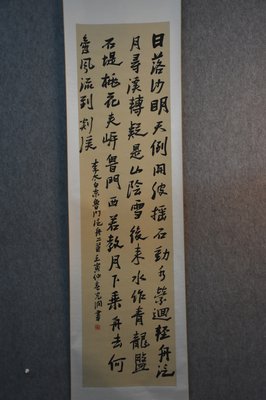 日落沙明天倒開波摇石動水縈迴輕舟泛
月尋溪轉疑是山陰雪後来水作青龍盤
石堤桃花夾岸魯門西若教月下乘舟去何
啻風流到剡溪
李太白東魯門泛舟二首壬寅仲春書